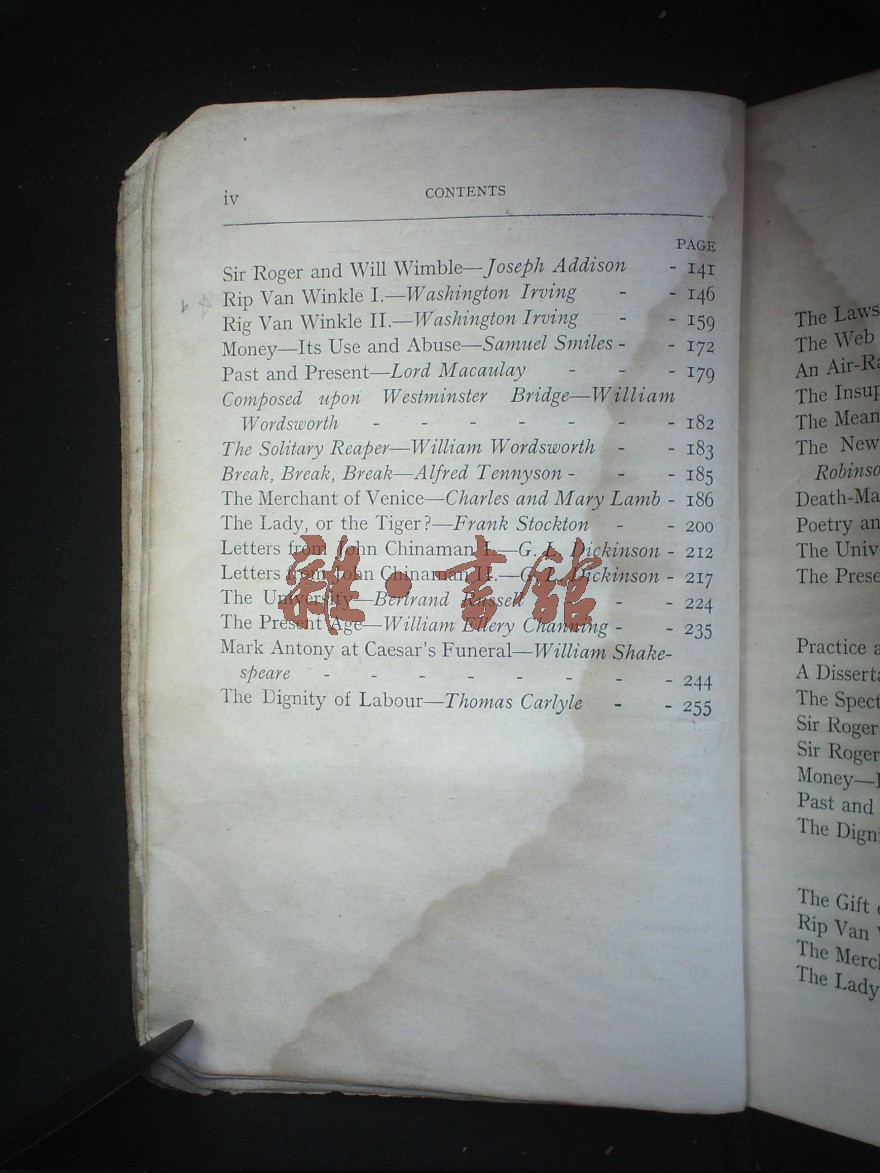 iv
CONTENTS
PAGE
Sir Roger and Will Wimble—Joseph Addison - 141
Rip Van Winkle I.—Washington Irving - - 146
Rig Van Winkle II.—Washington Irving - - 159
Money—Its Use and Abuse—Samuel Smiles - - 172
Past and Present—Lord Macaulay - - - 179
Composed upon Westminster Bridge—William
Wordsworth - - - - - - - 182
The Solitary Reaper—William Wordsworth - - 183
Break, Break, Break—Alfred Tennyson - - - 185
The Merchant of Venice—Charles and Mary Lamb - 186
The Lady, or the Tiger?—Frank Stockton - - 200
Letters from John Chinaman I.—G. L. Dickinson - 212
Letters from John Chinaman II.—G. L. Dickinson - 217
The University—Bertrand Russell - - 224
The Present Age—William Ellery Channing - - 235
Mark Antony at Caesar's Funeral—William Shake-
speare - - - - - - - - 244
The Dignity of Labour—Thomas Carlyle - - 255
雜·書館
The Laws
The Web
An Air-Ra
The Insup
The Mean
The New
Robinso
Death-Ma
Poetry an
The Univ
The Prese
Practice a
A Disserta
The Spect
Sir Roger
Sir Roger
Money—
Past and
The Dign
The Gift
Rip Van
The Merc
The Lady